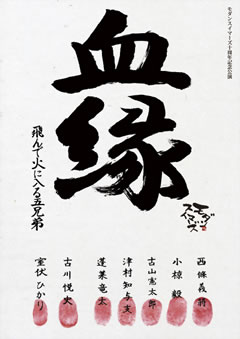 モダンスイマーズ十周年記念公演
血縁
飛んで火に入る五兄弟
モダン
スイマーズ
西條義将
小椋毅
古山憲太郎
津村知与支
蓬莱竜太
古川悦史
室伏ひかり